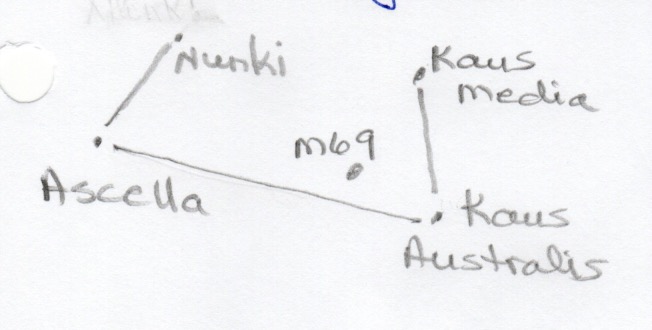 Nunki
Kaus
media
m69
Ascella
Kaus
Australis